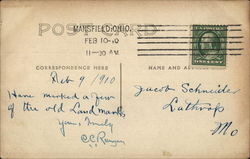 POST CARD
MANSFIELD, OHIO.
FEB 10-10
11-30 AM
CORRESPONDENCE HERE
NAME AND ADDRESS
Feb 9/1910
Have marked a few
of the old Land marks
Yours, Truly
Jacob Schneider
Lathrop
Mo